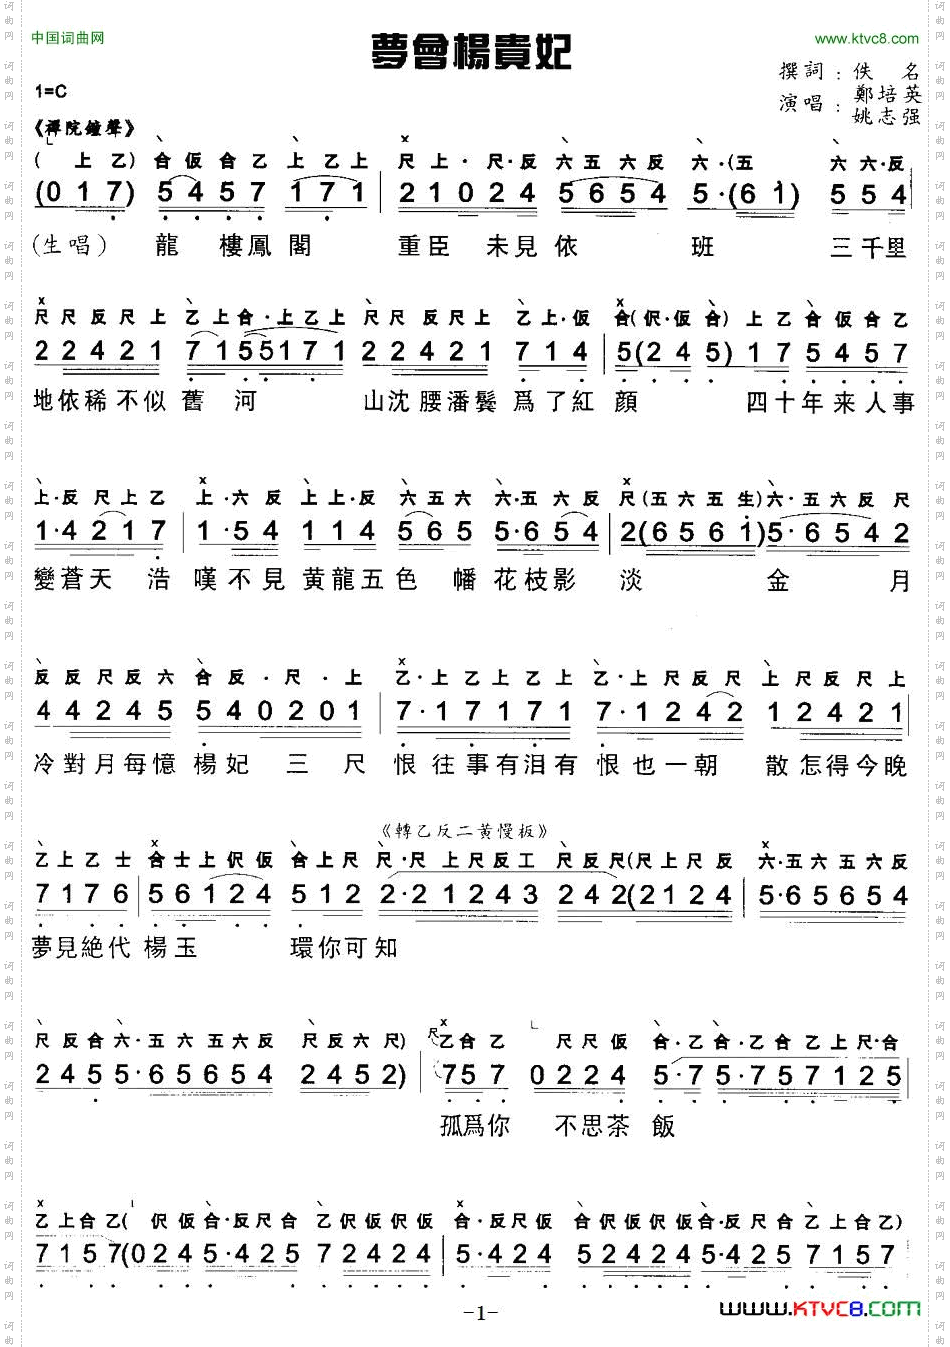 中国词曲网
www.ktvc8.com
夢會楊貴妃
1=C
撰詞：佚 名
演唱：鄭培英
姚志强
《禪院鐘聲》
( 上 乙) 合 仮 合 乙 上 乙 上 尺 上 · 尺 · 反 六 五 六 反 六 · (五 六 六 · 反
(0 1 7) 5 4 5 7 1 7 1 | 2 1 0 2 4 5 6 5 4 5 · (6 1) 5 5 4 |
(生唱) 龍 樓鳳 閣 重臣 未見 依 班 三千里
尺 尺 反 尺 上 乙 上 合 · 上 乙 上 尺 尺 反 尺 上 乙 上 · 仮 合 (伬 · 仮 合) 上 乙 合 仮 合 乙
2 2 4 2 1 7 1 5 5 1 7 1 2 2 4 2 1 7 1 4 | 5 (2 4 5) 1 7 5 4 5 7
地依稀不似舊 河 山沈腰潘鬢爲了紅顔 四十年来人事
上 · 反 尺 上 乙 上 · 六 反 上 上 · 反 六 五 六 六 · 五 六 反 尺 (五 六 五 生) 六 · 五 六 反 尺
1 · 4 2 1 7 | 1 · 5 4 1 1 4 5 6 5 5 · 6 5 4 | 2 (6 5 6 1) 5 · 6 5 4 2
變蒼天 浩 嘆不見黄龍五色 幡花枝影 淡 金 月
反 反 尺 反 六 合 反 · 尺 · 上 乙 · 上 乙 上 乙 上 乙 · 上 尺 反 尺 上 尺 反 尺 上
4 4 2 4 5 5 4 0 2 0 1 | 7 · 1 7 1 7 1 7 · 1 2 4 2 1 2 4 2 1 |
冷對月每憶楊妃 三 尺 恨往事有泪有恨也一朝 散怎得今晚
《轉乙反二黄慢板》
乙 上 乙 士 合 士 上 伬 仮 合 上 尺 尺 · 尺 上 尺 反 工 尺 反 尺 (尺 上 尺 反 六 · 五 六 五 六 反
7 1 7 6 | 5 6 1 2 4 5 1 2 2 · 2 1 2 4 3 2 4 2 (2 1 2 4 | 5 · 6 5 6 5 4
夢見絶代 楊玉 環你可知
尺 反 合 六 · 五 六 五 六 反 尺 反 六 尺) 尺 乙 合 乙 尺 尺 仮 合 · 乙 合 · 乙 合 乙 上 尺 · 合
2 4 5 5 · 6 5 6 5 4 2 4 5 2) | 7 5 7 0 2 2 4 5 · 7 5 · 7 5 7 1 2 5
孤爲你 不思茶飯
乙 上 合 乙 ( 伬 仮 合 · 反 尺 合 乙 伬 仮 伬 仮 合 · 反 尺 仮 合 伬 仮 伬 仮 合 · 反 尺 合 乙 上 合 乙)
7 1 5 7 (0 2 4 5 · 4 2 5 7 2 4 2 4 | 5 · 4 2 4 5 2 4 2 4 5 · 4 2 5 7 1 5 7
-1-
www.KTVC8.com